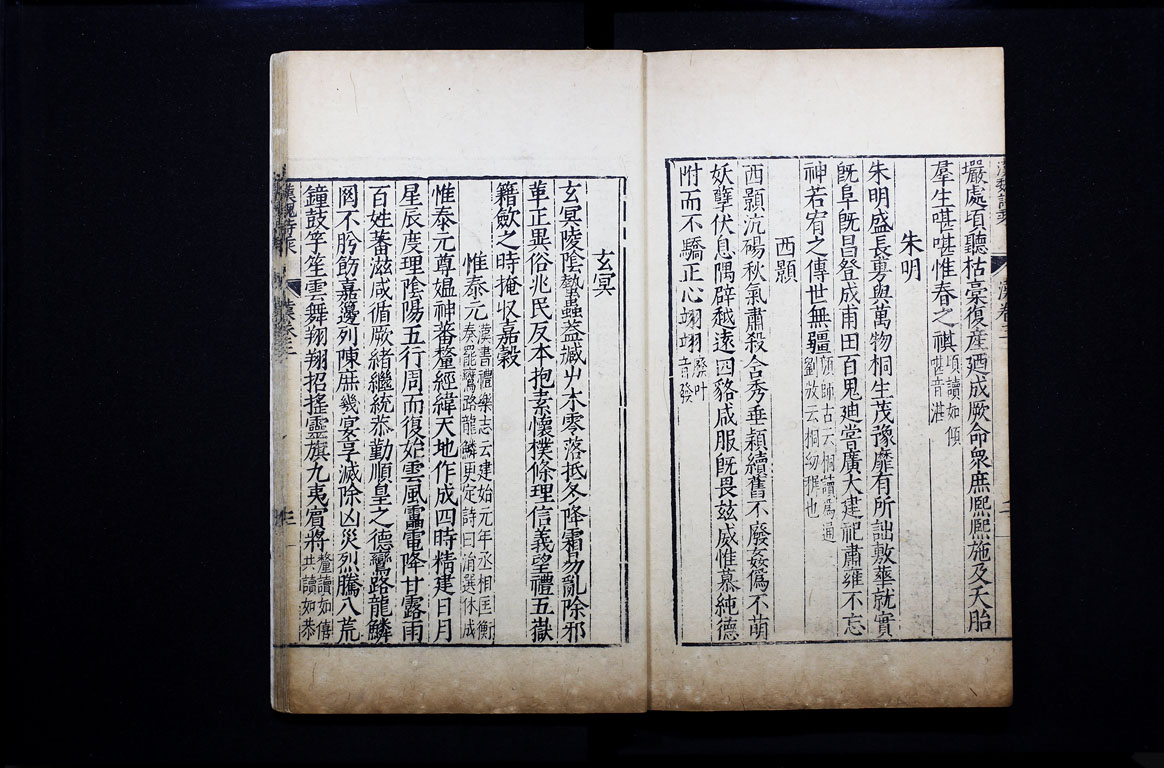 巖處頃聽枯槀復産廼成厥命衆庶熙熙施及夭胎
羣生啿啿惟春之祺頃讀如傾啿音湛
朱明
朱明盛長旉與萬物桐生茂豫靡有所詘敷華就實
旣阜旣昌登成甫田百鬼廸嘗廣大建祀肅雍不忘
神若宥之傳世無疆顔師古云桐讀爲通劉攽云桐幼穉也
西顥
西顥沆碭秋氣肅殺含秀垂穎續舊不廢姦僞不萌
妖孽伏息隅辟越遠四貉咸服旣畏玆威惟慕純德
附而不驕正心翊翊廢叶音發
玄冥
玄冥陵陰蟄蟲葢臧屮木零落抵冬降霜易亂除邪
革正異俗兆民反本抱素懷樸條理信義望禮五嶽
籍斂之時掩収嘉穀
惟泰元漢書禮樂志云建始元年丞相匡衡奏罷鸞路龍鱗更定詩曰涓選休成
惟泰元尊媪神蕃釐經緯天地作成四時精建日月
星辰度理陰陽五行周而復始雲風靁電降甘露雨
百姓蕃滋咸循厥緒繼統恭勤順皇之德鸞路龍鱗
罔不肸飾嘉籩列陳庶幾宴享滅除凶災烈騰八荒
鐘鼓竽笙雲舞翔翔招搖靈旗九夷賔將釐讀如僖共讀如恭